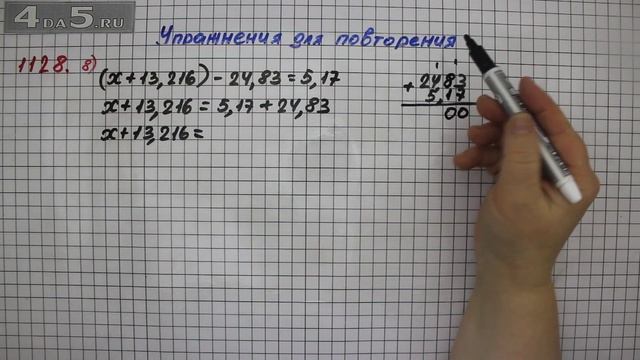 4DA5.RU
Упражнения для повторения
1128. 8) (x+13,216) - 24,83 = 5,17
x+13,216 = 5,17 + 24,83
x+13,216 =
1 1
+ 24,83
5,17
00